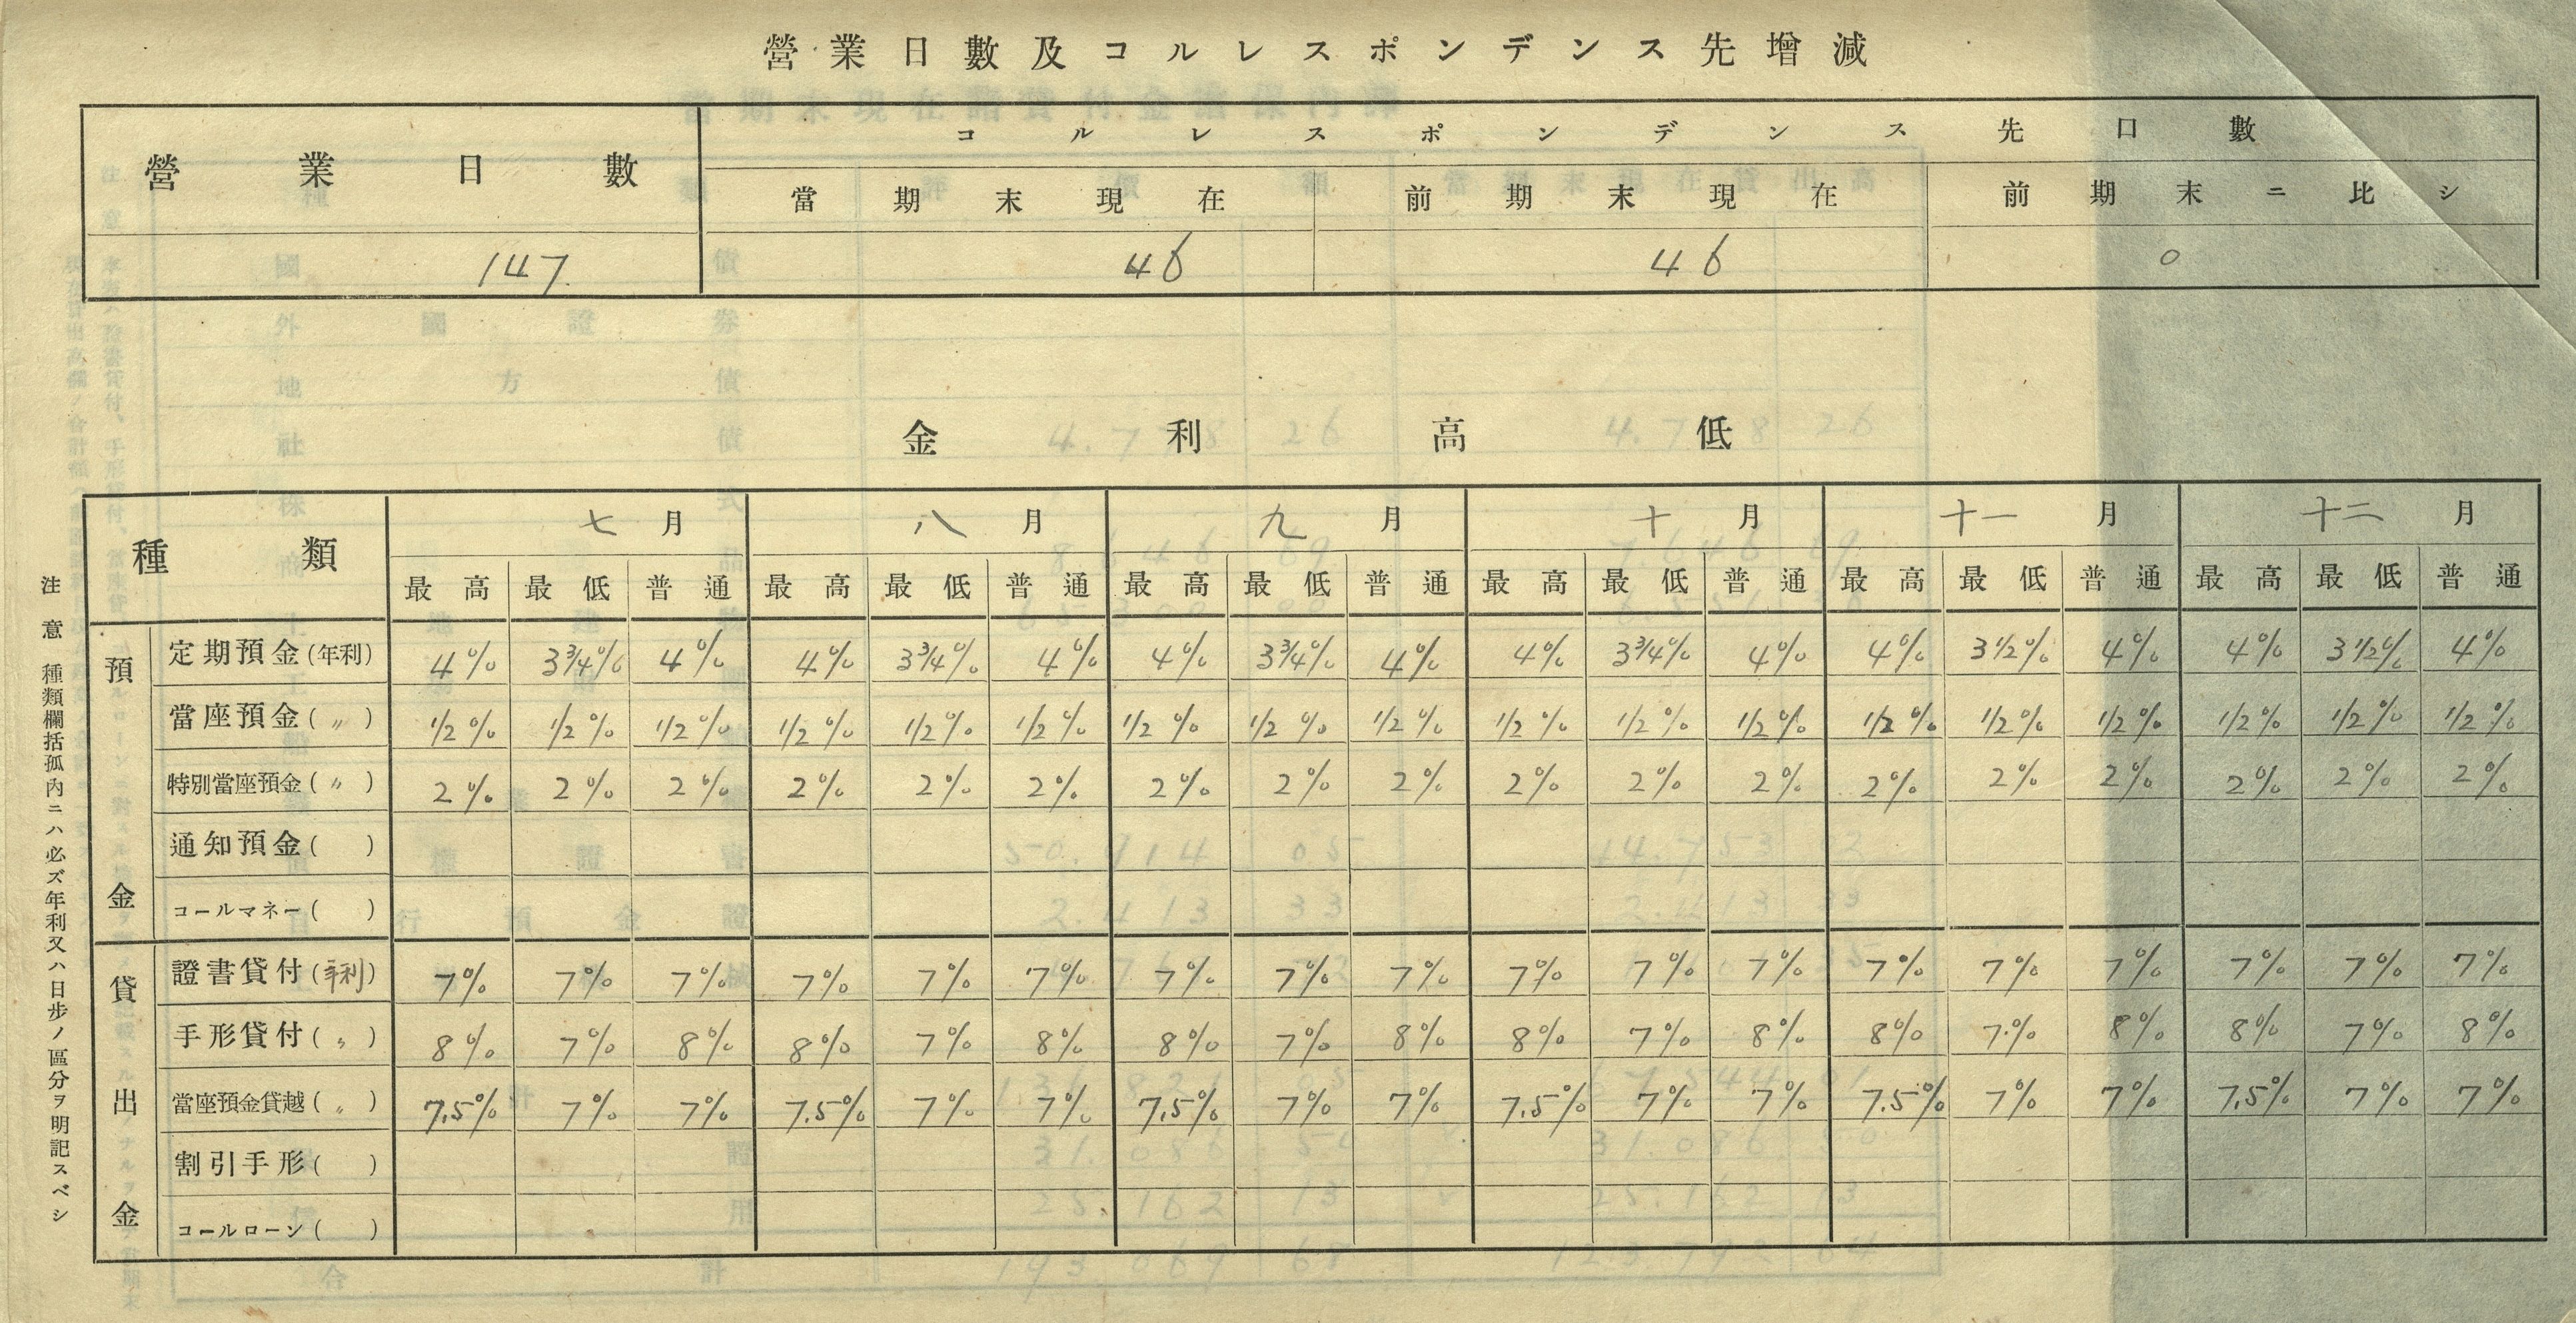 營業日數及コルレスポンデンス先增減
營業日數 コルレスポンデンス先口數
當期末現在 前期末現在 前期末ニ比シ
147 46 46 0
金利高低
種類 七月 八月 九月 十月 十一月 十二月
最高 最低 普通 最高 最低 普通 最高 最低 普通 最高 最低 普通 最高 最低 普通 最高 最低 普通
預金
定期預金(年利) 4% 3 3/4% 4% 4% 3 3/4% 4% 4% 3 3/4% 4% 4% 3 3/4% 4% 4% 3 1/2% 4% 4% 3 1/2% 4%
當座預金(〃) 1/2% 1/2% 1/2% 1/2% 1/2% 1/2% 1/2% 1/2% 1/2% 1/2% 1/2% 1/2% 1/2% 1/2% 1/2% 1/2% 1/2% 1/2%
特別當座預金(〃) 2% 2% 2% 2% 2% 2% 2% 2% 2% 2% 2% 2% 2% 2% 2% 2% 2% 2%
通知預金( )
コールマネー( )
貸出金
證書貸付(年利) 7% 7% 7% 7% 7% 7% 7% 7% 7% 7% 7% 7% 7% 7% 7% 7% 7% 7%
手形貸付(〃) 8% 7% 8% 8% 7% 8% 8% 7% 8% 8% 7% 8% 8% 7% 8% 8% 7% 8%
當座預金貸越(〃) 7.5% 7% 7% 7.5% 7% 7% 7.5% 7% 7% 7.5% 7% 7% 7.5% 7% 7% 7.5% 7% 7%
割引手形( )
コールローン( )
注意 種類欄括孤內ニハ必ズ年利又ハ日步ノ區分ヲ明記スベシ